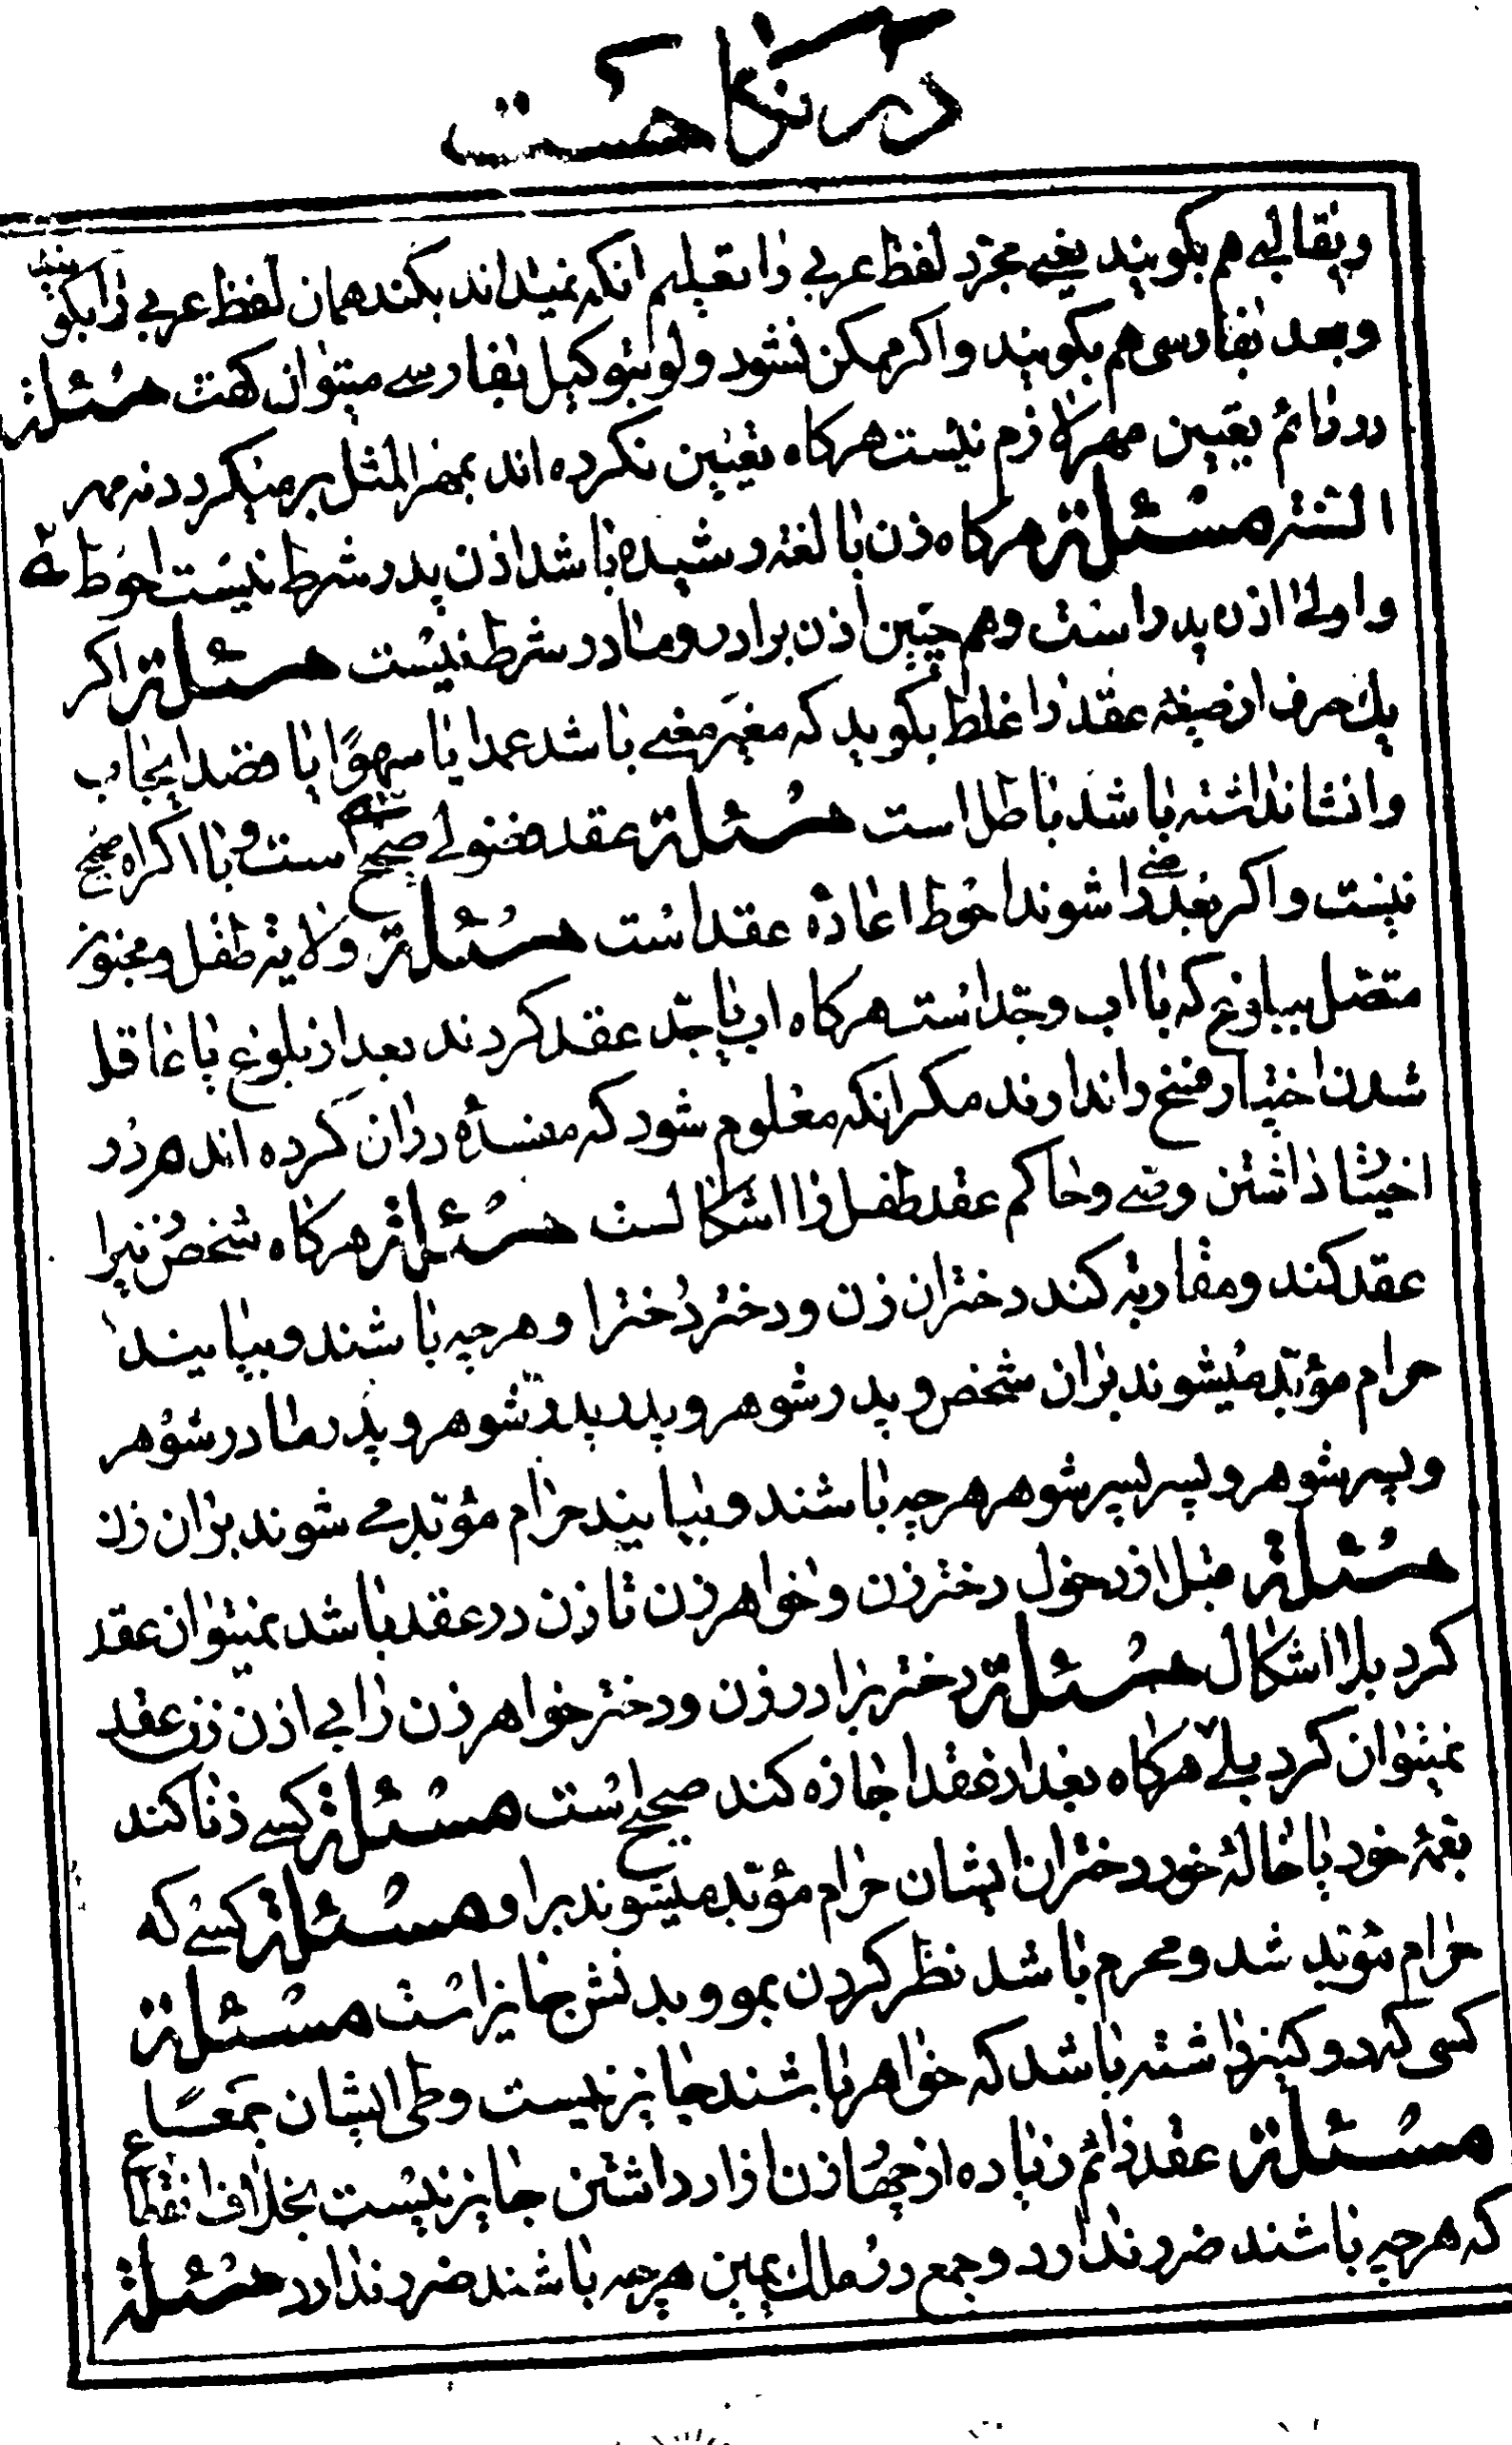 در نکاحست
وبقالبی هم بکویند یعنی مجرد لفظ عربی را تعلیم انکه نمیداند بکند همان لفظ عربی را بکوید
وبعد بفارسی هم بکویند واکر ممکن نشود ولو بتوکیل بفارسی میتوان کفت مسئلة
در دائم تعیین مهر لازم نیست هرکاه تعیین نکرده اند بمهر المثل برمیکردد نه مهر
السنة مسئلة هرکاه زن بالغه رشیده باشد اذن پدر شرط نیست احوط
واولی اذن پدر است وهم چنین اذن برادر ومادر شرط نیست مسئلة اکر
یک حرف از صیغه عقد را غلط بکوید که مغیر معنی باشد عمدا یا سهوًا یا قصد ایجاب
وانشا نداشته باشد باطل است مسئلة عقد فضولی صحیح است وبا اکراه صحیح
نیست واکر بعد راضی شوند احوط اعادهٔ عقد است مسئلة ولایة طفل ومجنون
متصل ببلوغ که با اب وجد است هرکاه اب یا جد عقد کردند بعد از بلوغ یا عاقل
شدن اختیار فسخ را ندارند مکر انکه معلوم شود که مفسدهٔ دران کرده اند هر دو
اختیار داشتن وصی وحاکم عقد طفل را اشکالست مسئلة هرکاه شخص زنیرا
عقد کند ومقاربة کند دختران زن ودختر دختر او هرچه باشند وبیایند
حرام مؤبد میشوند بران شخص و پدر شوهر و پدر پدر شوهر و پدر مادر شوهر
و پسر شوهر و پسر پسر شوهر هرچه باشند و بیایند حرام مؤبد می شوند بران زن
مسئلة قبل از دخول دختر زن وخواهر زن تا زن در عقد باشد نمیتوان عقد
کرد بلا اشکال مسئلة دختر برادر زن ودختر خواهر زن را بی اذن زن عقد
نمیتوان کرد بلی هرکاه بعد از عقد اجازه کند صحیح است مسئلة کسی زنا کند
بعمهٔ خود یا خالهٔ خود دختران ایشان حرام مؤبد میشوند بر او مسئلة کسی که
حرام مؤبد شد ومحرم باشد نظر کردن بمو و بدنش جایز است مسئلة
کسی که دو کنیز داشته باشد که خواهر باشند جایز نیست وطی ایشان جمعًا
مسئلة عقد دائم زیاده از چهار زن ازاد داشتن جایز نیست بخلاف انقطاع
که هرچه باشند ضرر ندارد وجمع در ملک یمین هرچه باشند ضرر ندارد مسئلة